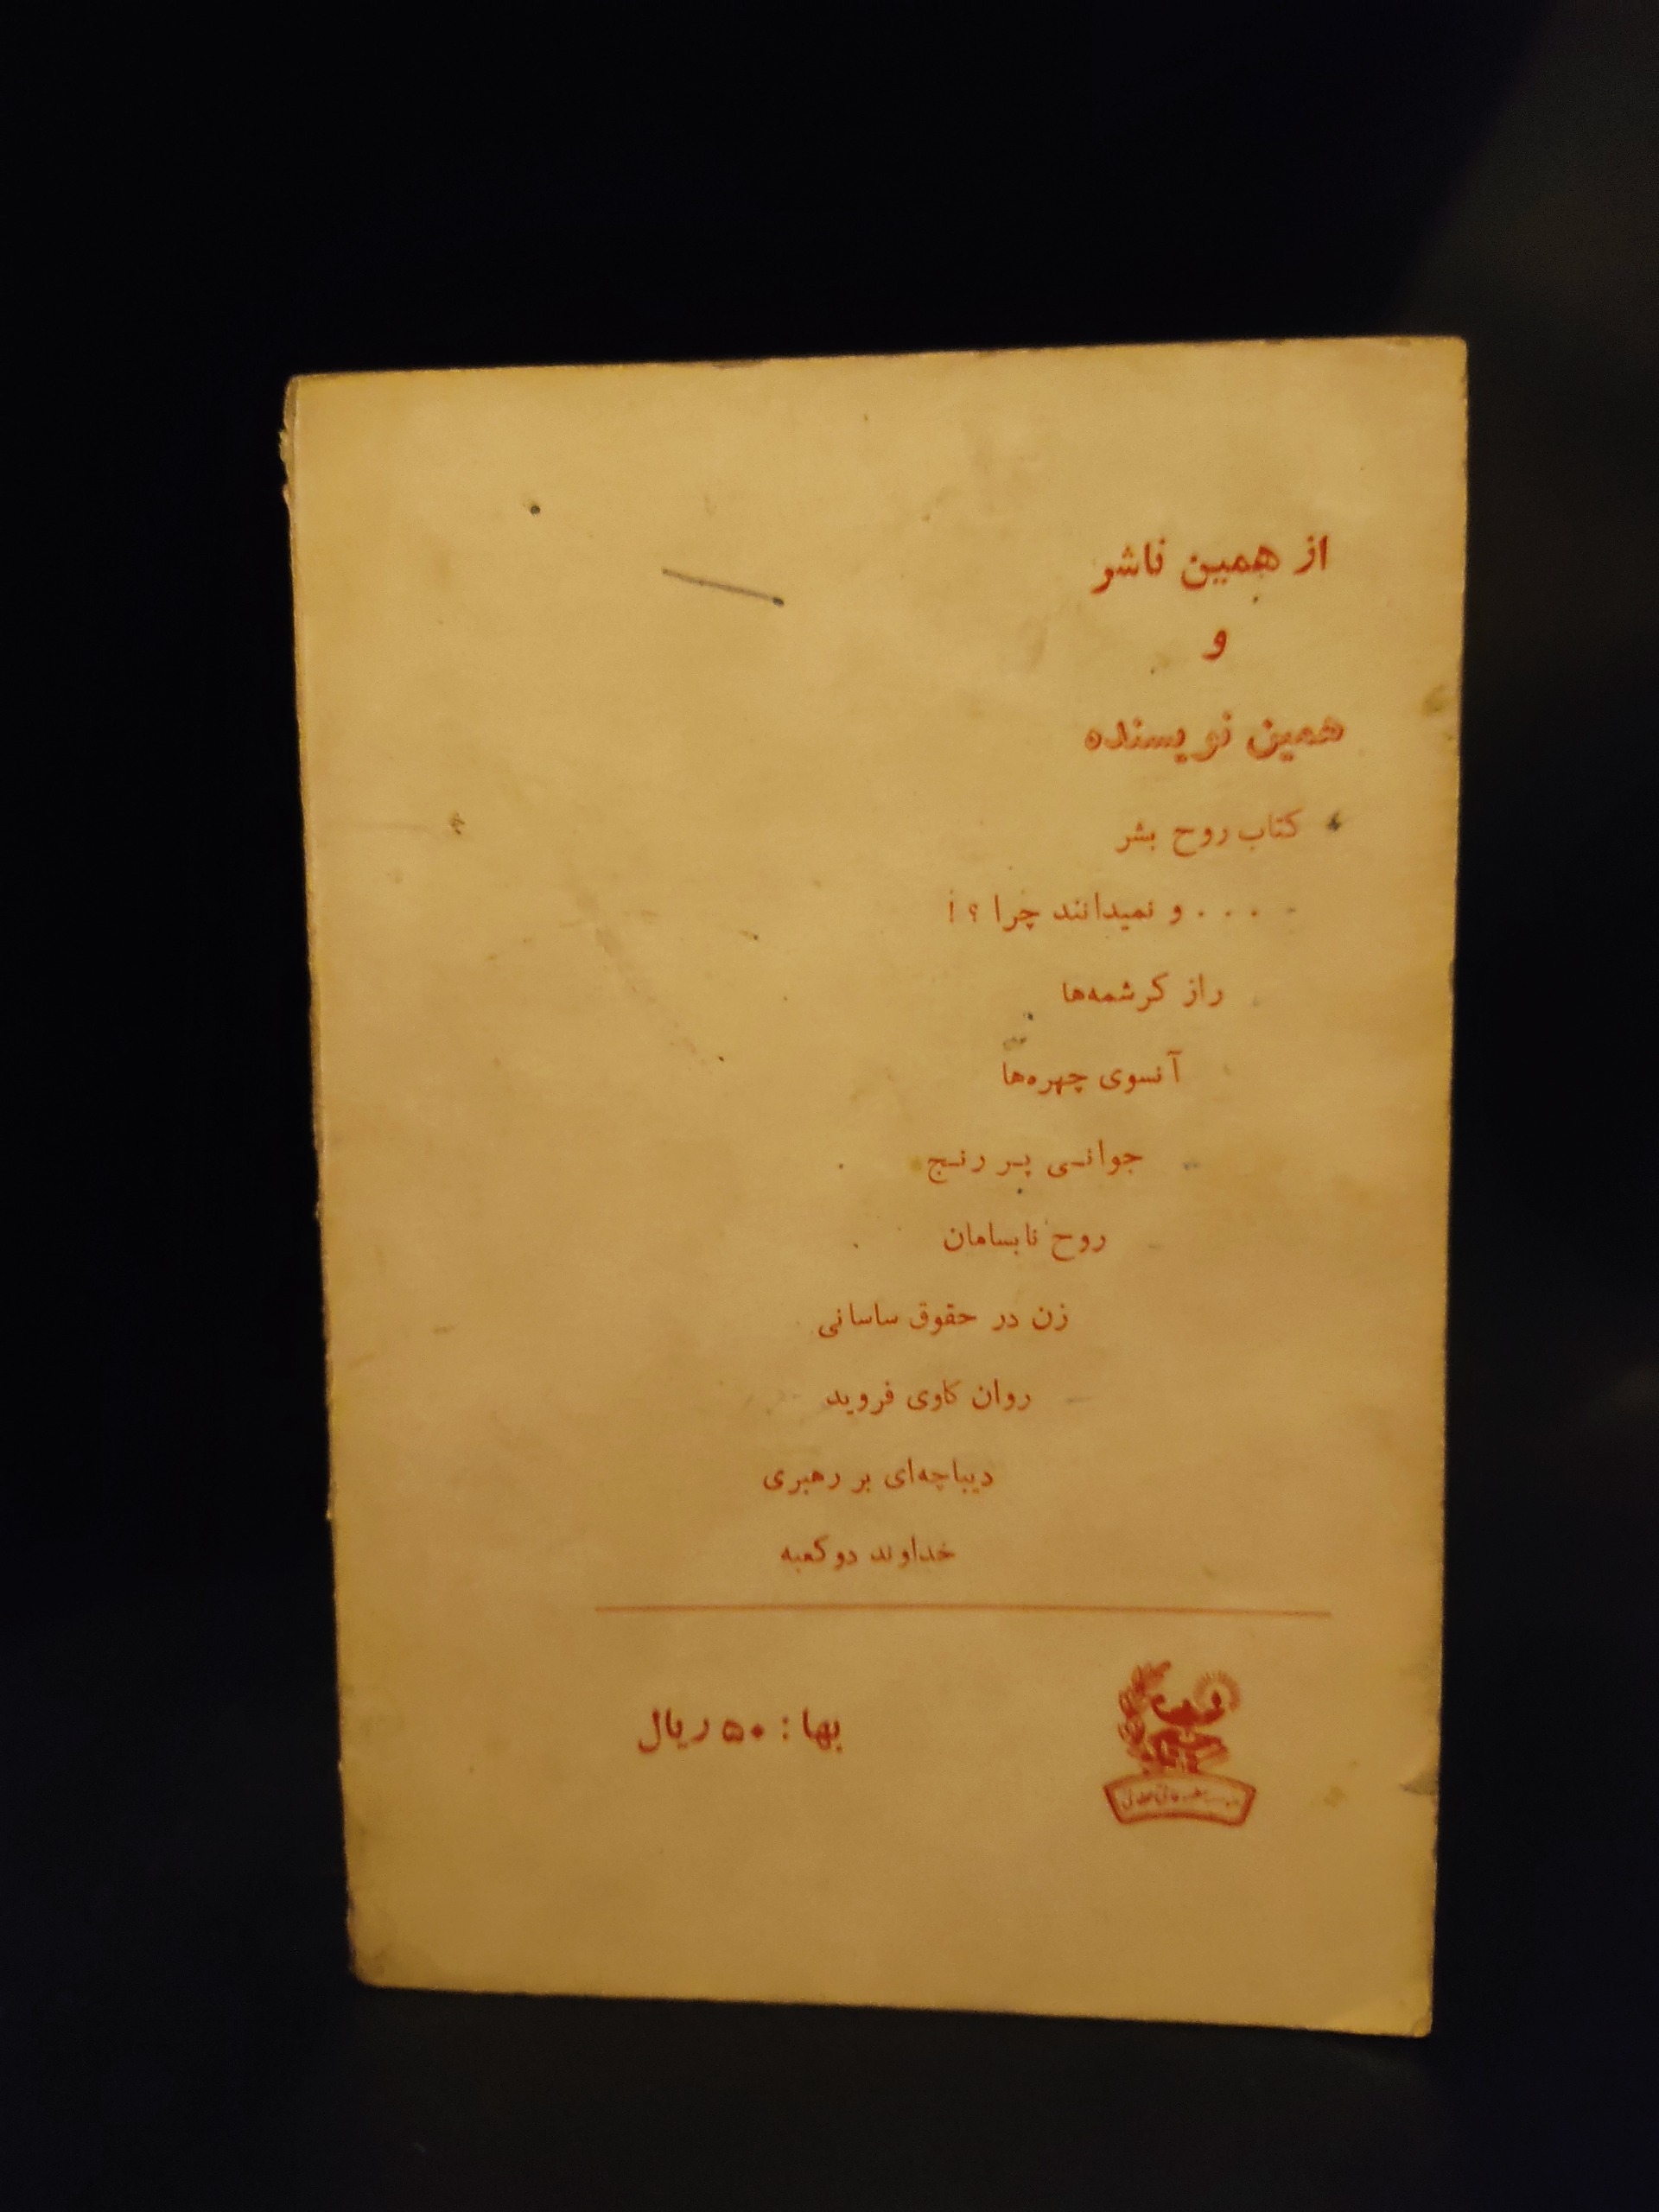 از همین ناشر
و
همین نویسنده
کتاب روح بشر
. . . . و نمیدانند چرا ؟ !
راز کرشمه‌ها
آنسوی چهره‌ها
جوانی پر رنج
روح نابسامان
زن در حقوق ساسانی
روان کاوی فروید
دیباچه‌ای بر رهبری
خداوند دو کعبه
بها : ۵۰ ریال